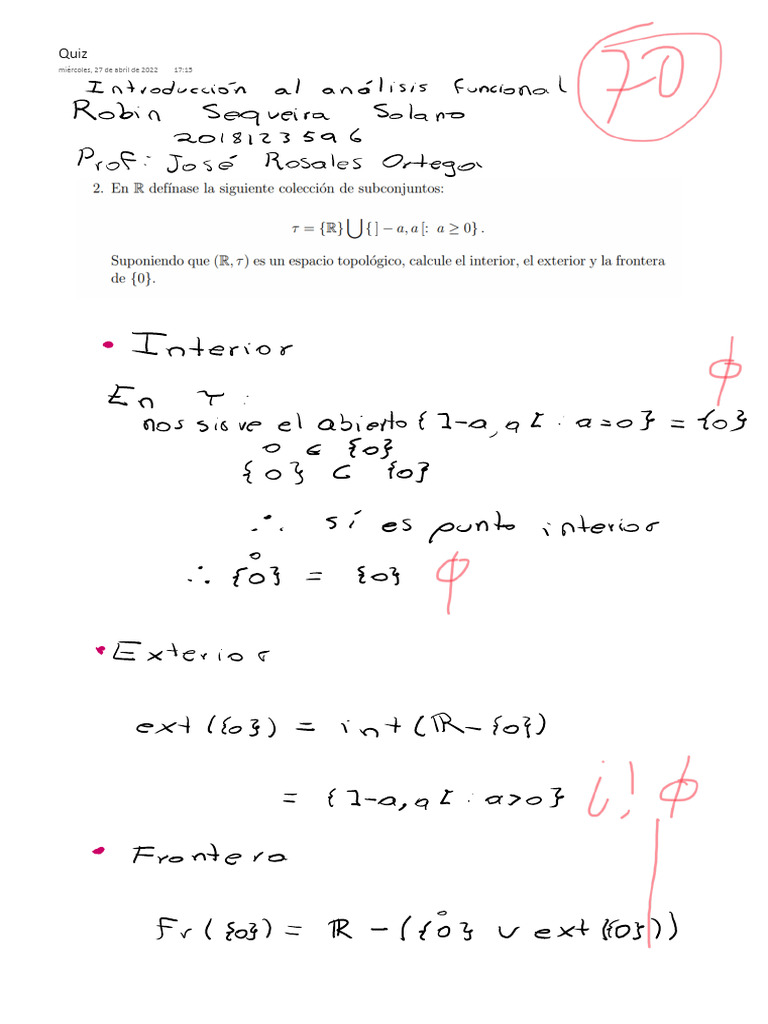 Quiz
miércoles, 27 de abril de 2022 17:15
70
Introducción al análisis funcional
Robin Sequeira Solano
2018123596
Prof: José Rosales Ortega
2. En ℝ defínase la siguiente colección de subconjuntos:
τ = {ℝ} ⋃ { ] − a, a [: a ≥ 0} .
Suponiendo que (ℝ, τ) es un espacio topológico, calcule el interior, el exterior y la frontera
de {0}.
• Interior
En τ :
ϕ
nos sirve el abierto { ]-a, a[ : a=0} = {0}
0 ∈ {0}
{0} ⊂ {0}
∴ sí es punto interior
∴ {0}° = {0} ϕ
• Exterior
ext ({0}) = int (ℝ - {0})
= { ]-a, a[ : a>0} ¿! ϕ
• Frontera
Fr ( {0}) = ℝ - ({0}° ∪ ext ({0}))